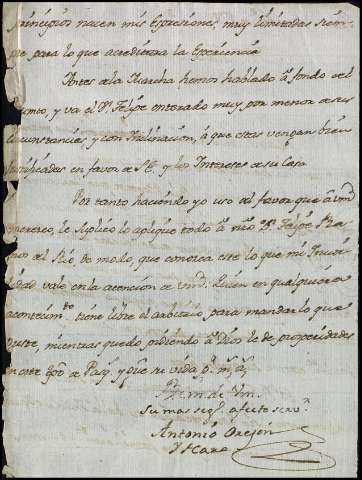 principios nacen mis expresiones, muy limitadas siem-
pre para lo que acreditara la experiencia
Antes de la Marcha hemos hablado a fondo del
punto, y va el Dn. Felipe enterado muy por menor de sus
circunstancias, y con Inclinacion, a que estas vengan bien
justificadas en favor de S.E. y los Intereses de su Casa
Por tanto haciendo yo uso del favor que a Vmd
merezco, le suplico lo aplique todo a mio Dn. Felipe
del Rio de modo, que conozca este lo que mi
vale en la atencion de Vmd. Quien en qualquiera
acontecimto. tiene libre el arbitrio, para mandar lo que
guste, mientras quedo, pidiendo a Dios le de prosperidades
en este y que su vida ms. as.
B. l. m. de Vm.
su mas segº. afecto servr.
Antonio Orejon
y Haro